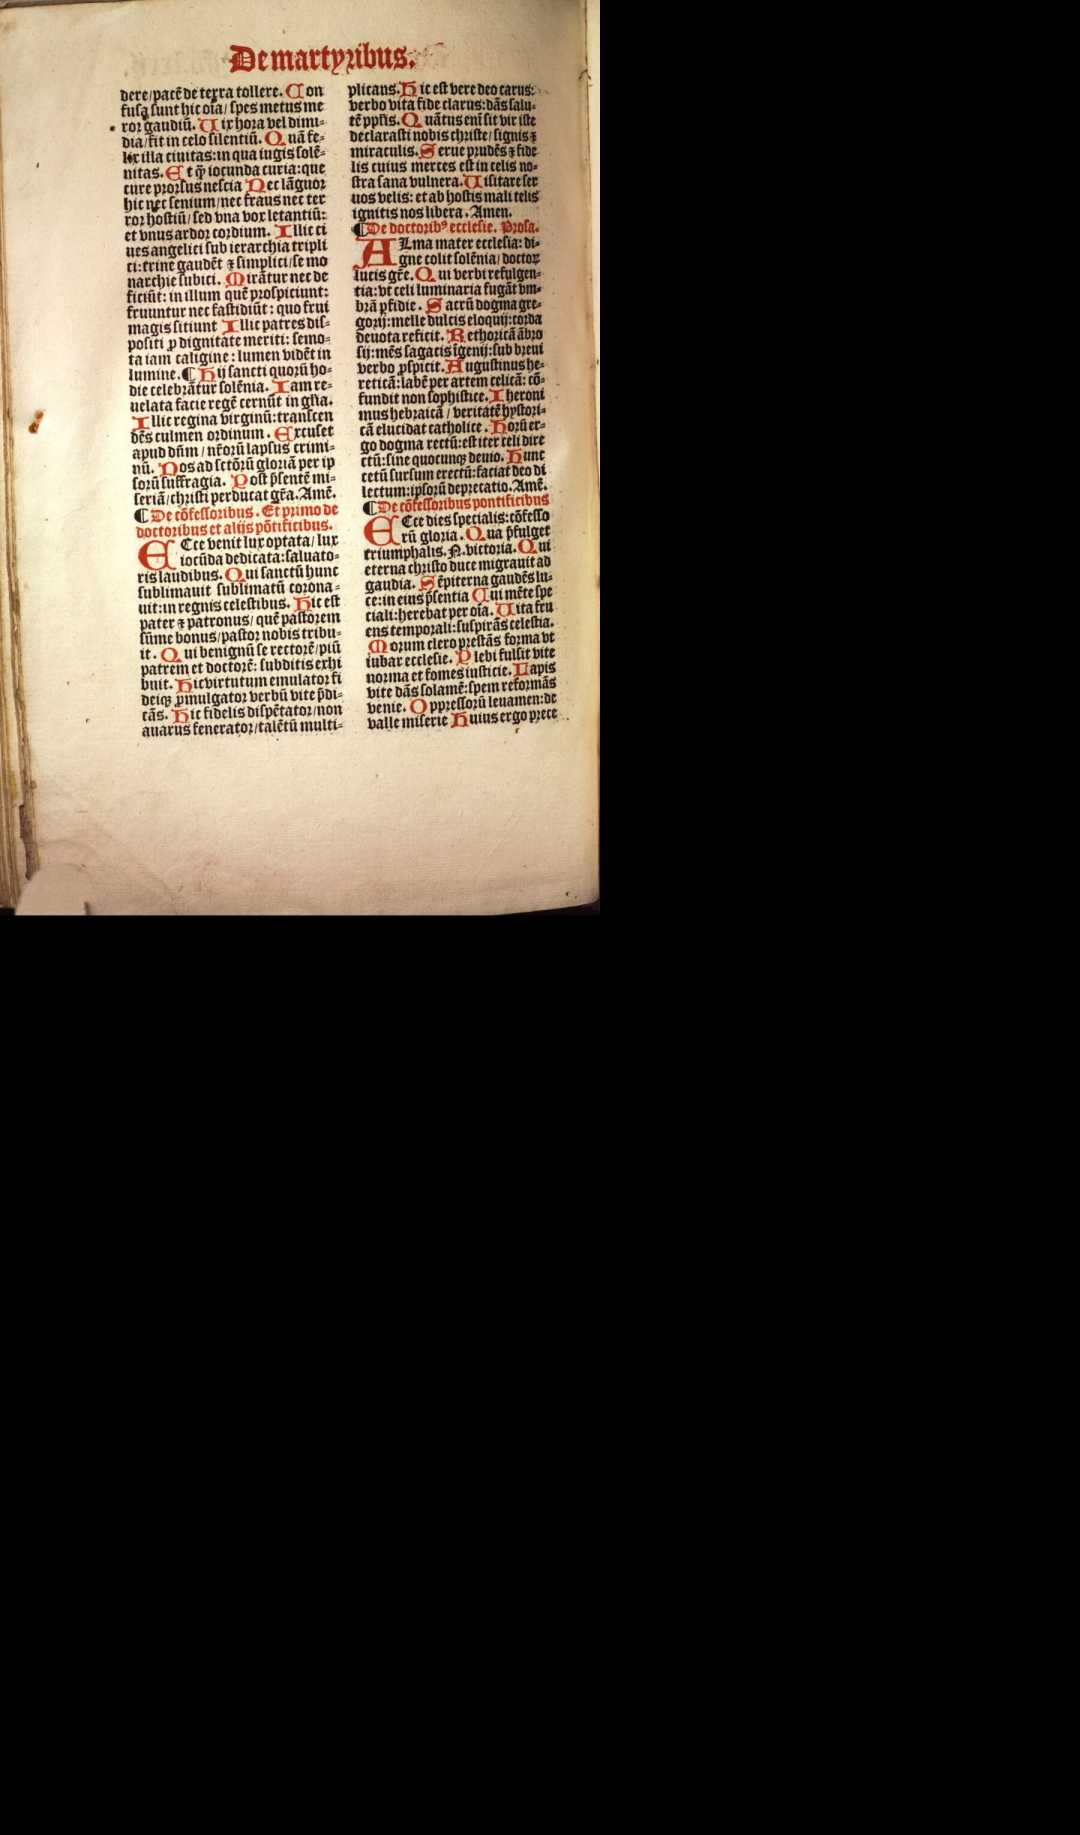 De martyribus.
dere/pacē de terra tollere. Con
fusa sunt hic oīa/ spes metus me
ror gaudiū. Uix hora vel dimi-
dia/fit in celo silentiū. Quā fe-
lix illa ciuitas:in qua iugis solē-
nitas. Et q̄ iocunda curia:que
cure prorsus nescia Nec lāguor
hic nec senium/nec fraus nec ter
ror hostiū/ sed vna vox letantiū:
et vnus ardor cordium. Illic ci
ues angelici sub ierarchia tripli
ci:trine gaudēt ⁊ simplici/se mo
narchie subici. Mirātur nec de
ficiūt: in illum quē prospiciunt:
fruuntur nec fastidiūt: quo frui
magis sitiunt Illic patres dis-
positi ꝓ dignitate meriti: semo-
ta iam caligine: lumen vidēt in
lumine. ¶ Hij sancti quorū ho-
die celebrātur solēnia. Iam re-
uelata facie regē cernūt in gl̄ia.
Illic regina virginū:transcen
dēs culmen ordinum. Excuset
apud dn̄m/ nr̄orū lapsus crimi-
nū. Nos ad sctōrū gloriā per ip
sorū suffragia. Post p̄sentē mi-
seriā/christi perducat gr̄a. Amē.
¶ De cōfessoribus. Et primo de
doctoribus et alijs pōtificibus.
Ecce venit lux optata/ lux
iocūda dedicata:saluato-
ris laudibus. Qui sanctū hunc
sublimauit sublimatū corona-
uit:in regnis celestibus. Hic est
pater ⁊ patronus/ quē pastorem
sūme bonus/pastor nobis tribu-
it. Qui benignū se rectorē/piū
patrem et doctorē: subditis exhi
buit. Hic virtutum emulator fi
deiqꝫ ꝓmulgator verbū vite p̄di-
cās. Hic fidelis dispēsator/non
auarus fenerator/talētū multi-
plicans. Hic est vere deo carus:
verbo vita fide clarus: dās salu-
tē pp̄lis. Quātus enī sit vir iste
declarasti nobis christe/ signis ⁊
miraculis. Serue prudēs ⁊ fide
lis cuius merces est in celis no-
stra sana vulnera. Uisitare ser
uos velis: et ab hostis mali telis
ignitis nos libera. Amen.
¶ De doctoribꝰ ecclesie. Prosa.
Alma mater ecclesia: di-
gne colit solēnia/ doctoꝝ
lucis gr̄e. Qui verbi refulgen-
tia: vt celi luminaria fugāt vm-
brā ꝑfidie. Sacrū dogma gre-
gorij:melle dulcis eloquij:corda
deuota reficit. Rethoricā ābro
sij:mēs sagacis īgenij:sub breui
verbo ꝑspicit. Augustinus he-
reticā:labē per artem celicā: cō-
fundit non sophistice. Iheroni
mus hebraicā / veritatē hystori-
cā elucidat catholice. Horū er-
go dogma rectū:est iter celi dire
ctū:sine quocunqꝫ deuio. Hunc
cetū sursum erectū:faciat deo di
lectum:ipsorū deprecatio. Amē.
¶ De cōfessoribus pontificibus
Ecce dies specialis:cōfesso
rū gloria. Qua p̄fulget
triumphalis. N. victoria. Qui
eterna christo duce migrauit ad
gaudia. Sēpiterna gaudēs lu-
ce:in eius p̄sentia Cui mēte spe
ciali:herebat per oīa. Uita fru
ens temporali:suspirās celestia.
Morum clero prestās forma vt
iubar ecclesie. Plebi fulsit vite
norma et fomes iusticie. Lapis
vite dās solamē:spem reformās
venie. Oppressorū leuamen:de
valle miserie Huius ergo prece